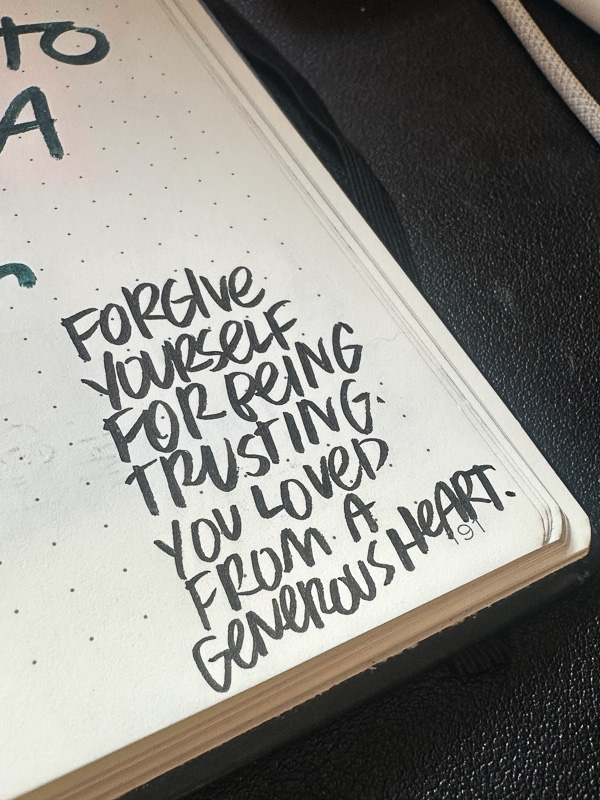 to
A
FORGIVE
YOURSELF
FOR BEING
TRUSTING.
YOU LOVED
FROM A
GENEROUS HEART.
191